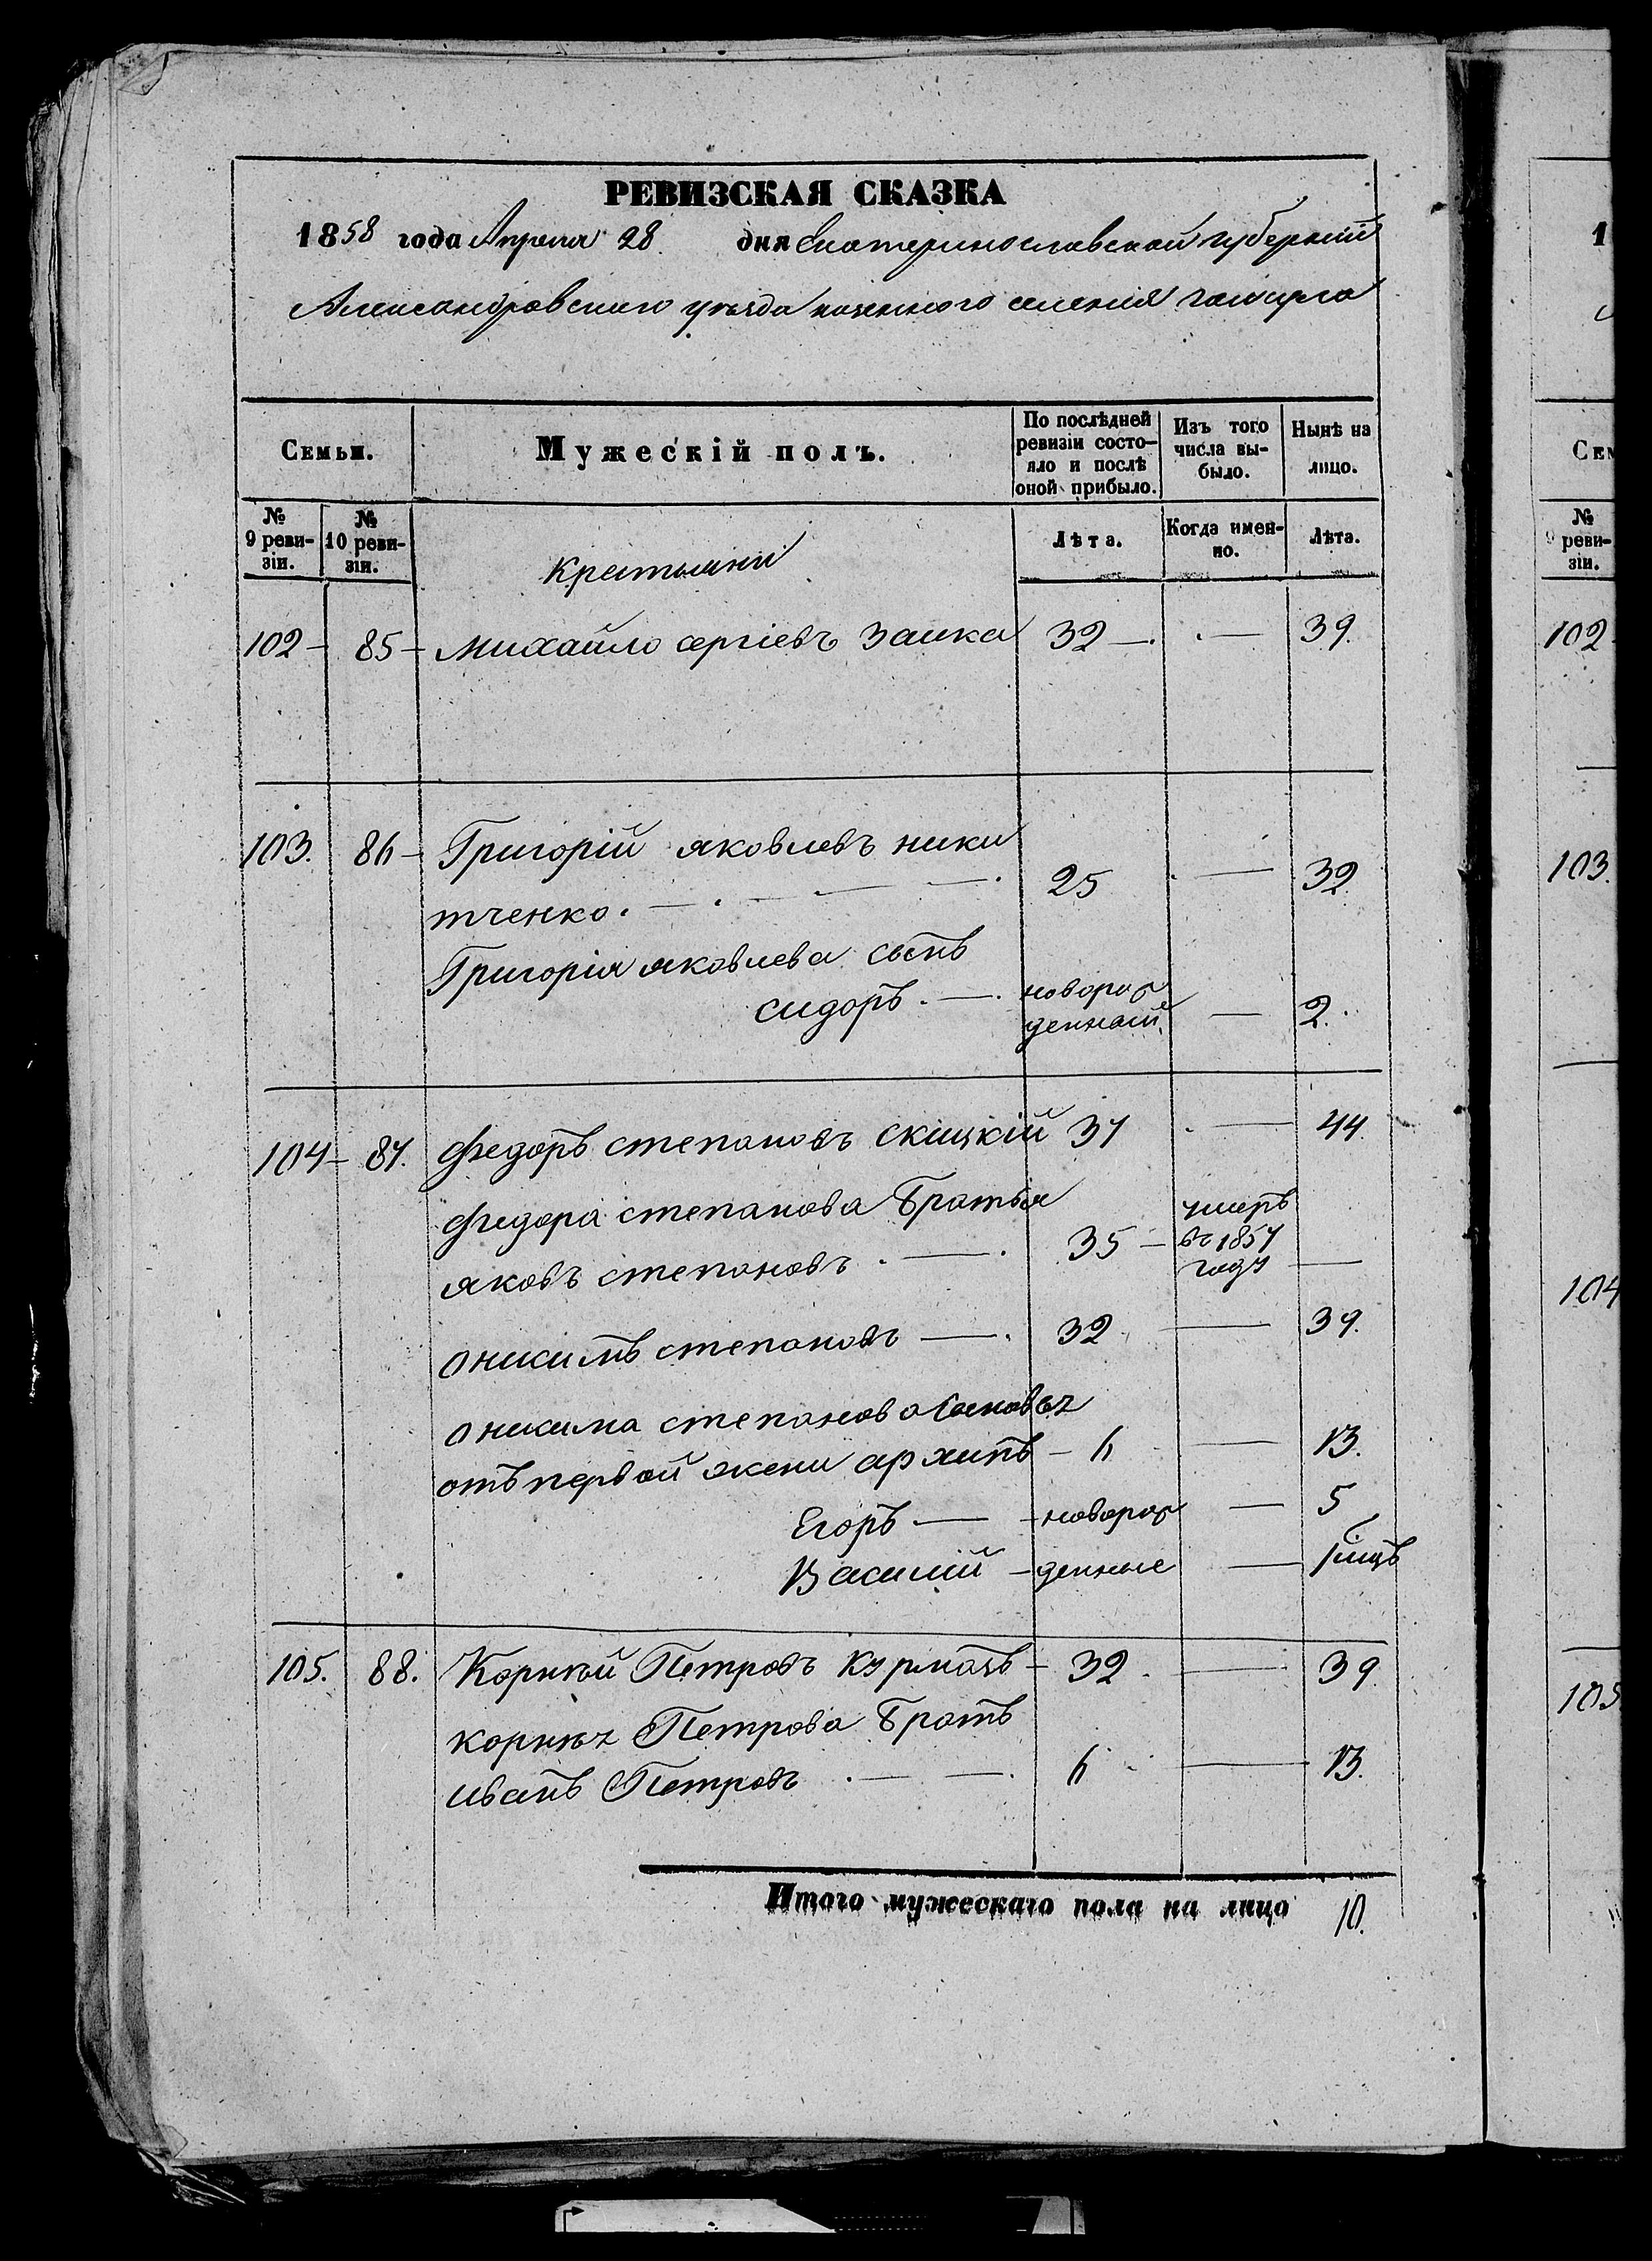 РЕВИЗСКАЯ СКАЗКА
1858 года Апреля 28 дня Екатеринославской губернии
Александровского уезда казенного селения гайчула
Семьи.
Мужескiй полъ.
По послѣдней ревизiи состо-
яло и послѣ
оной прибыло.
Изъ того
числа вы-
было.
Нынѣ на
лицо.
№
9 реви-
зiи.
№
10 реви-
зiи.
крестьяни
Лѣта.
Когда имен-
но.
Лѣта.
102 – 85 – михайло сергiевъ заика 32 — . — 39.
103. 86 – Григорiй яковлевъ ники
тченко. — . — — 25 . — 32.
Григорiя яковлева сынъ
сидоръ. — новорож
денный — 2.
104 – 87. федоръ степановъ скицкiй 37 . — 44.
федора степанова братья
яковъ степановъ . — 35 – умеръ
въ 1857
году —
оникимъ степановъ — . 32 — 39.
оникима степанова сыновья
отъ первой жени архипъ – 6 — 13.
Егоръ — новорож — 5
Василiй – денные — 1 мцъ
105. 88. Корнѣй Петровъ курмазъ – 32. — 39.
корнѣя Петрова братъ
иванъ Петровъ . — — 6 — 13.
Итого мужескаго пола на лицо 10.
1
Сем
№
9 реви-
зiи.
102
103.
104
105